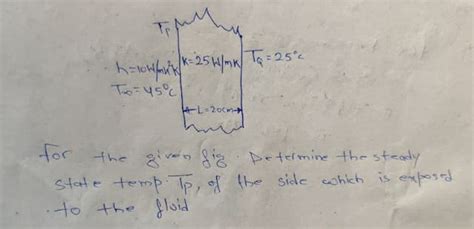 Tp
h=10W/m²K K=25W/mK TQ=25°c
T∞=45°c
L=20cm
for the given fig. Determine the steady
state temp Tp, of the side which is exposed
to the fluid